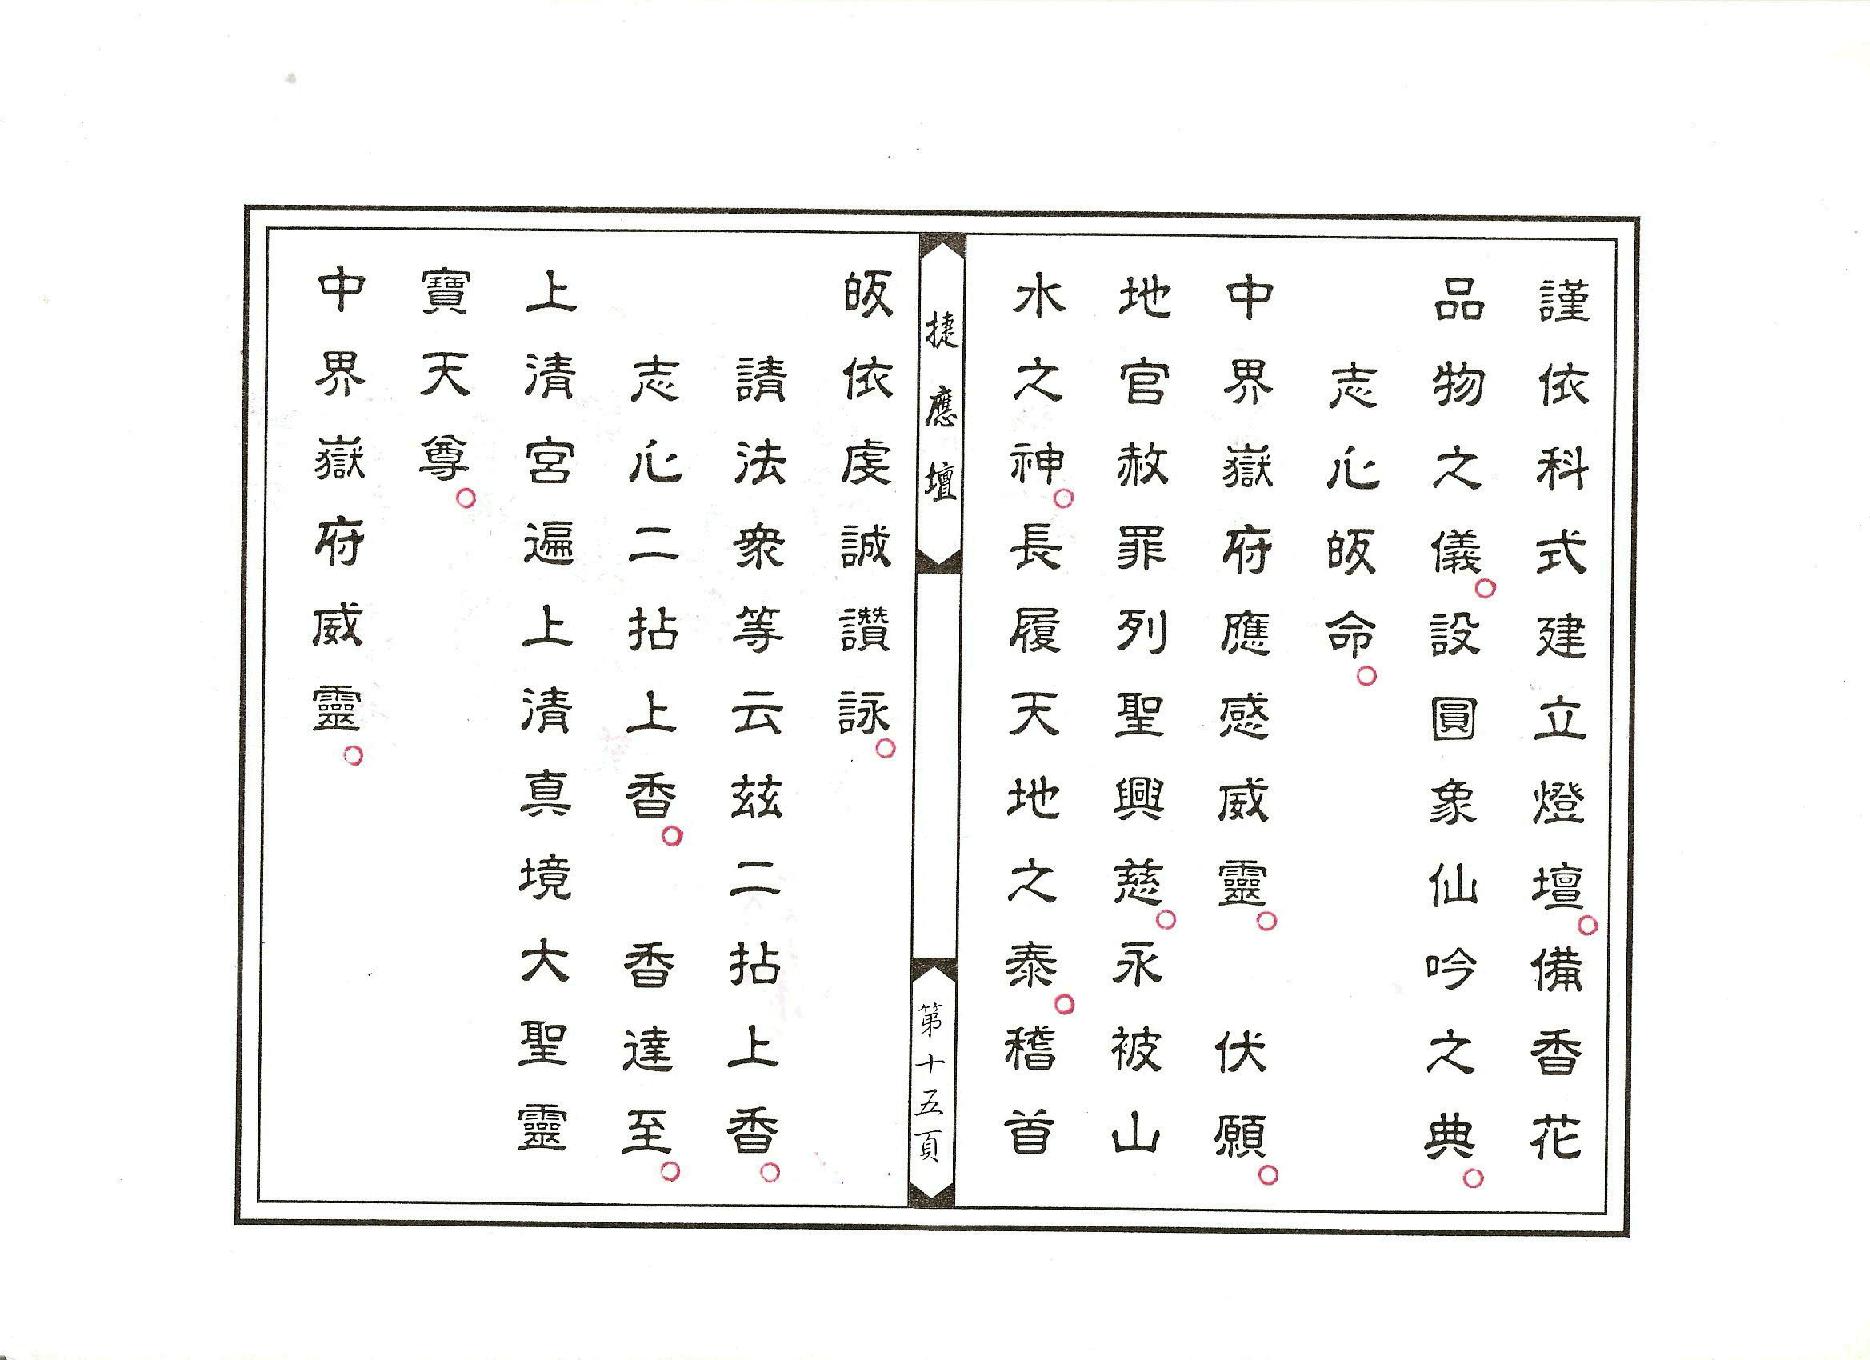 謹依科式建立燈壇○備香花
品物之儀○設圓象仙吟之典○
志心皈命○
中界嶽府應感威靈○　伏願○
地官赦罪列聖興慈○永被山
水之神○長履天地之泰○稽首
捷應壇
第十五頁
皈依虔誠讚詠○
請法衆等云玆二拈上香○
志心二拈上香○　香達至○
上清宮遍上清真境大聖靈
寶天尊○
中界嶽府威靈○